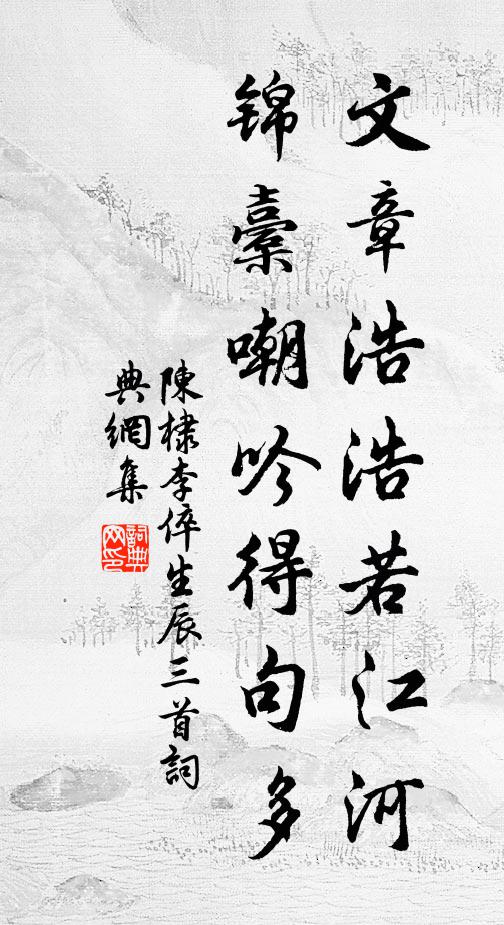 文章浩浩若江河
锦橐嘲吟得句多
陳棣李倅生辰三首詞
典網集
詞典网印